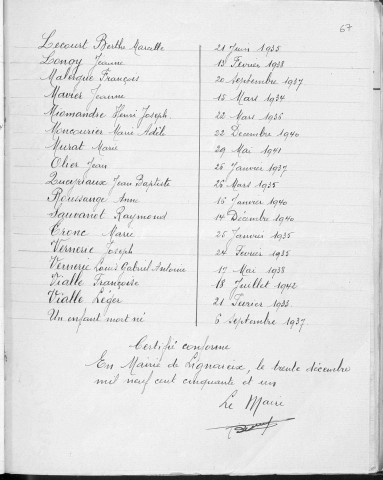 67
Lecourt Berthe Marcelle 21 Juin 1935
Lonoy Jeanne 13 Février 1938
Malergue François 20 Septembre 1937
Mavier Jeanne 15 Mars 1934
Miomandre Henri Joseph 22 Mars 1936
Moncourier Marie Adèle 22 Décembre 1940
Murat Marie 29 Mai 1941
Olier Jean 26 Janvier 1937
Jean Baptiste 26 Mars 1935
Roussange Anna 15 Janvier 1940
Sauvanet Raymond 14 Décembre 1940
Cronc Marie 25 Janvier 1935
Vernerie Joseph 24 Février 1935
Vernerie Louis Gabriel Antoine 17 Mai 1938
Vialle Françoise 18 Juillet 1942
Vialle Léger 21 Février 1933
Un enfant mort né 6 Septembre 1937
Certifié conforme
En Mairie de Lignareix, le trente décembre
mil neuf cent cinquante et un
Le Maire